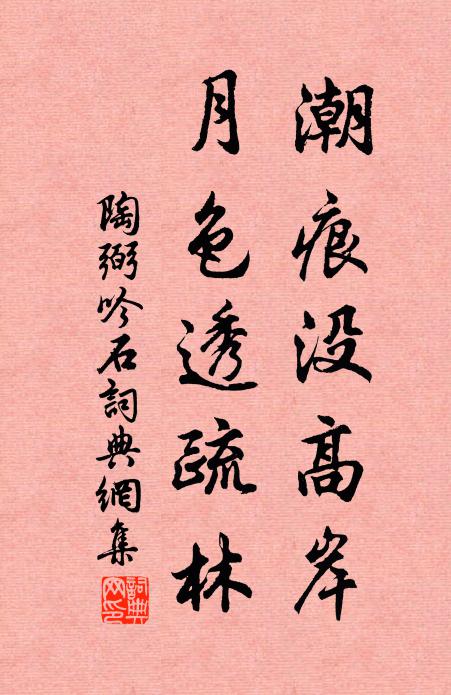 潮痕没高岸
月色透疏林
陶弼吟石詞典網集
詞典网印